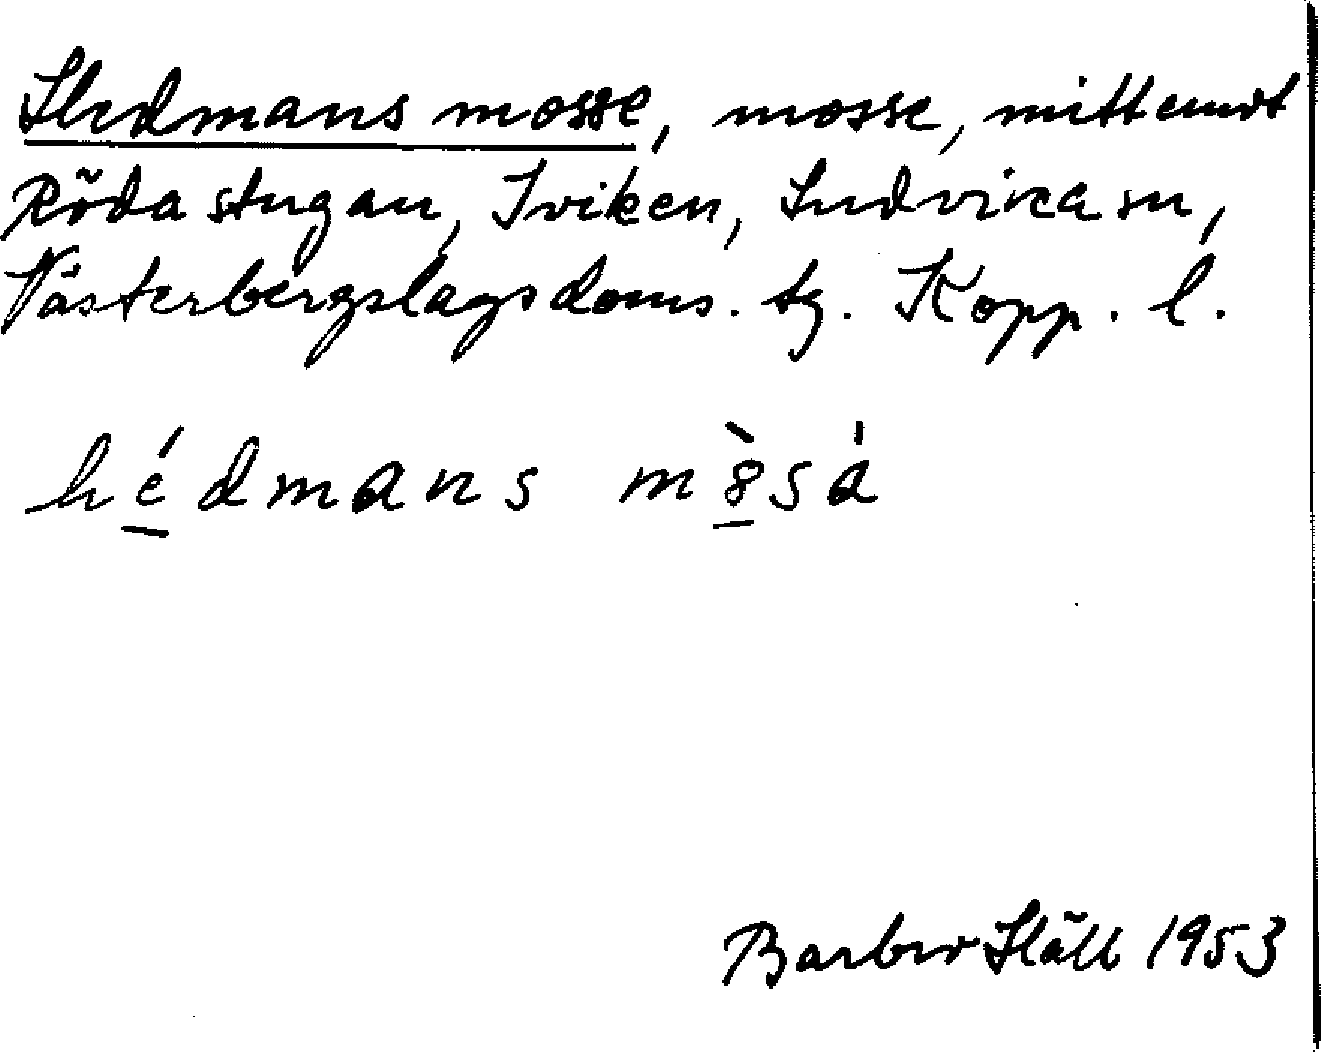 Hedmans mosse, mosse, mitt emot
Röda stugan, Iviken, Ludvika sn,
Västerbergslags doms. tg. Kopp. l.
hédmans mòsá
Barbro Häll 1953